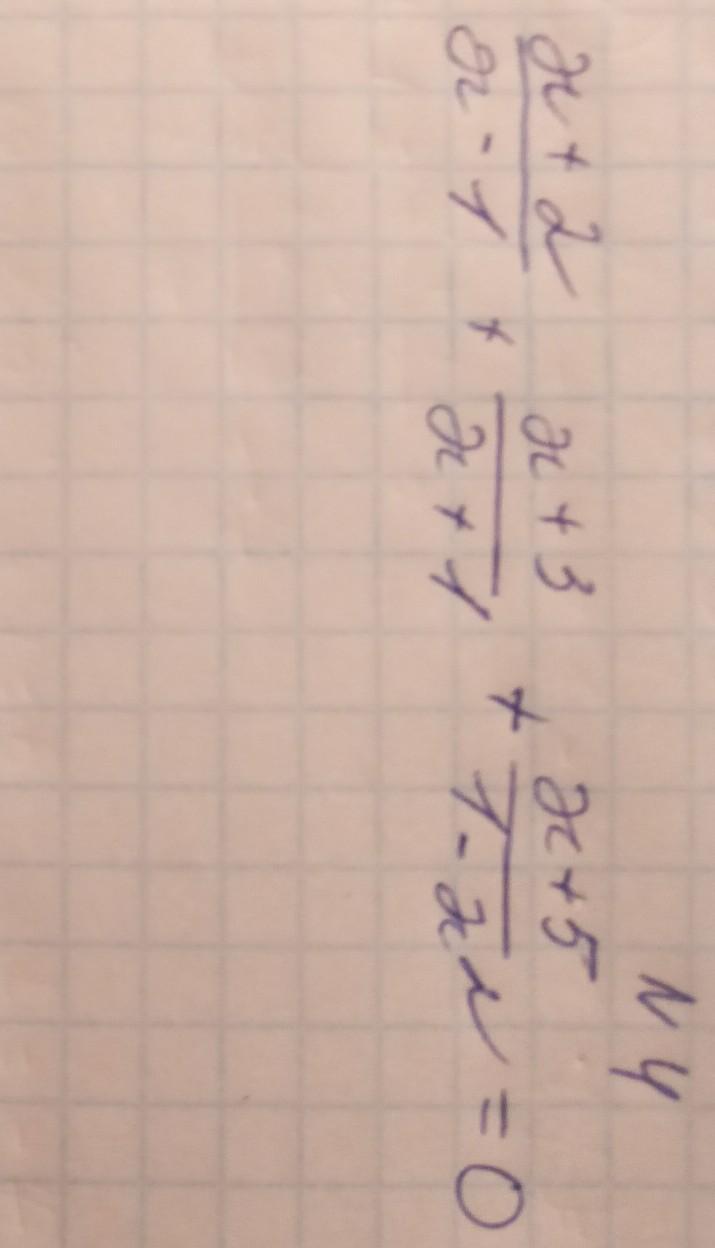 N 4
x + 2 / x - 1 + x + 3 / x + 1 + x + 5 / 1 - x² = 0